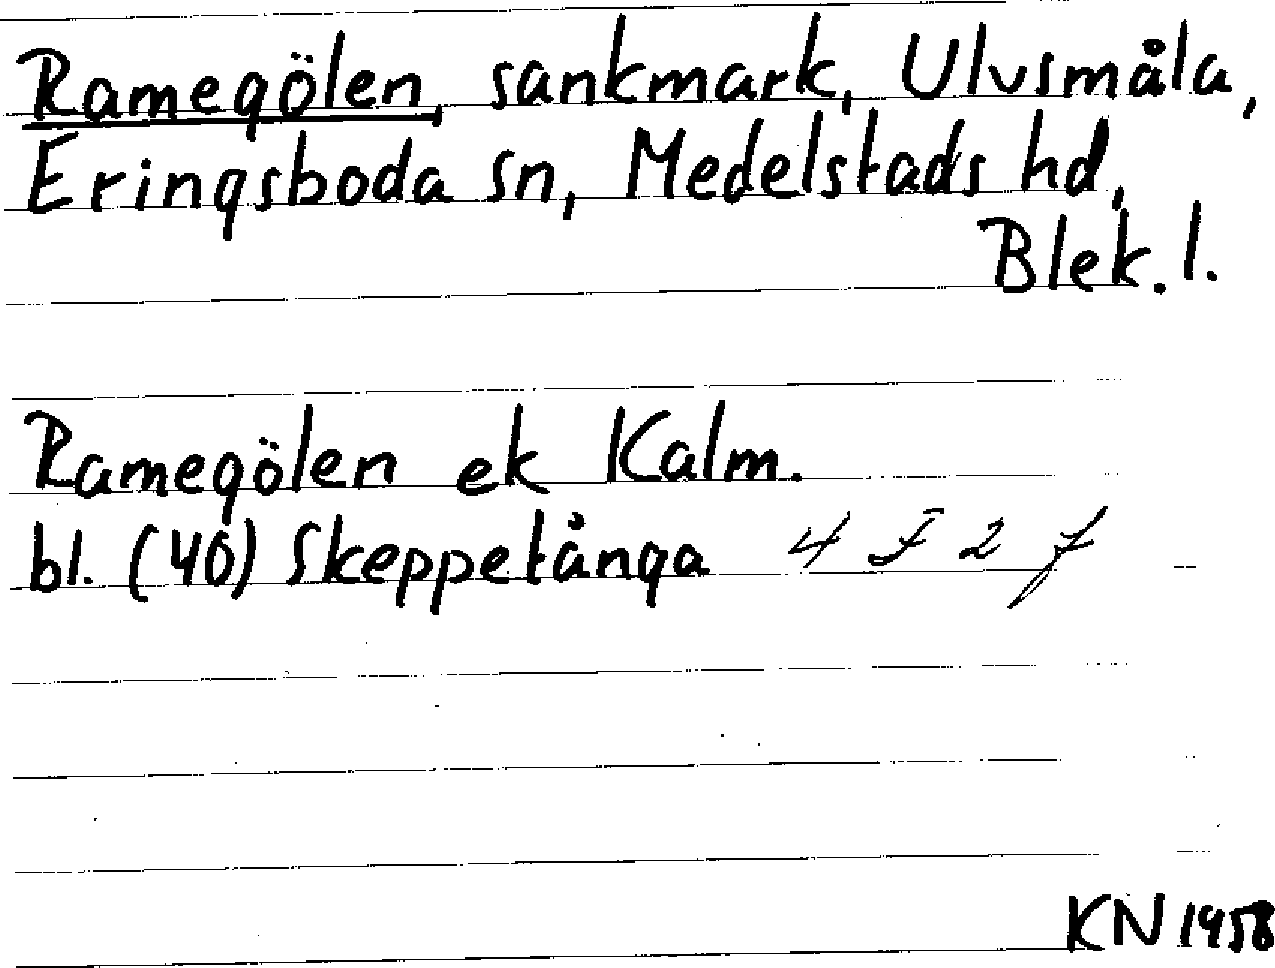 Ramegölen, sankmark, Ulvsmåla,
Eringsboda sn, Medelstads hd,
Blek. l.
Ramegölen ek Kalm.
bl. (40) Skeppetånga 4 F 2 f
KN 1958